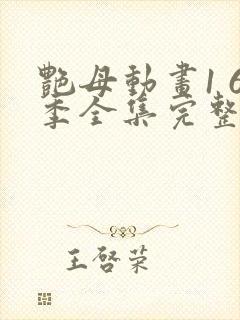 艷母動畫16
季全集完整
王啓荣